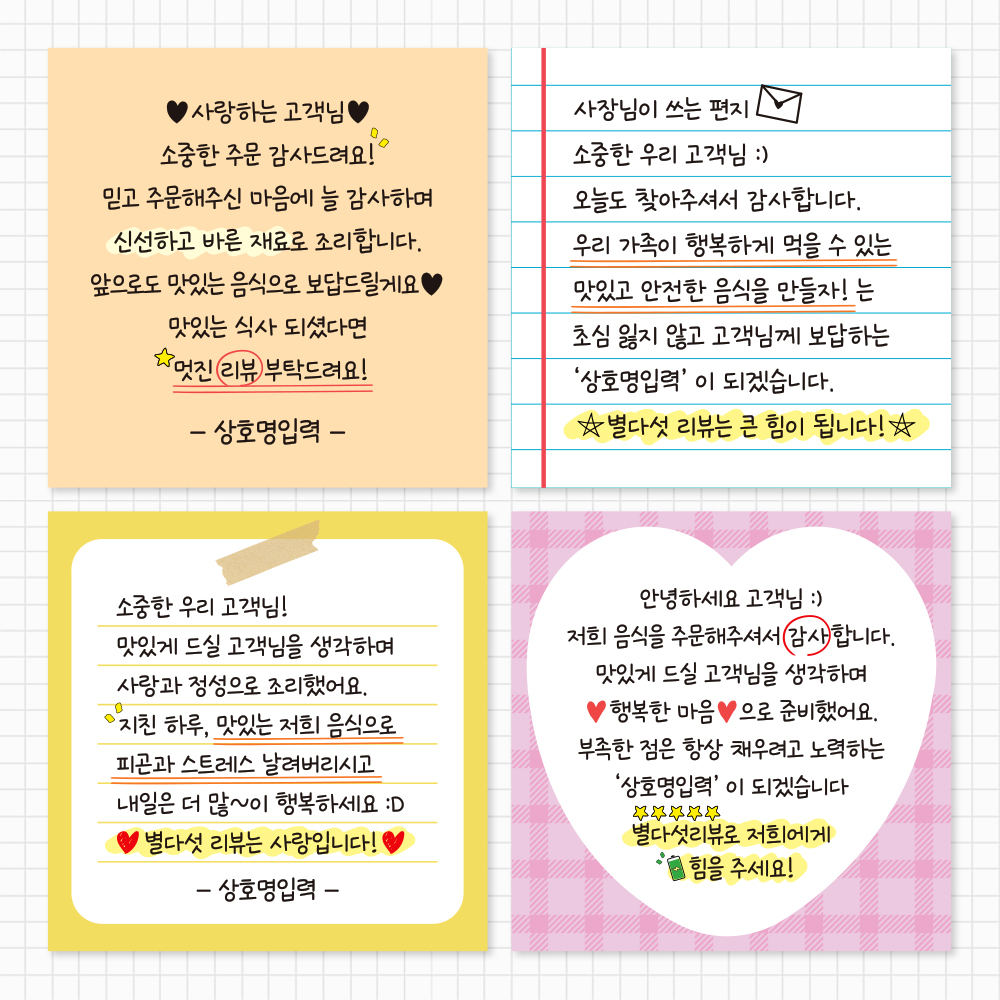 ♥사랑하는 고객님♥
소중한 주문 감사드려요!
믿고 주문해주신 마음에 늘 감사하며
신선하고 바른 재료로 조리합니다.
앞으로도 맛있는 음식으로 보답드릴게요♥
맛있는 식사 되셨다면
멋진 리뷰 부탁드려요!
– 상호명입력 –
사장님이 쓰는 편지
소중한 우리 고객님 :)
오늘도 찾아주셔서 감사합니다.
우리 가족이 행복하게 먹을 수 있는
맛있고 안전한 음식을 만들자! 는
초심 잃지 않고 고객님께 보답하는
‘상호명입력’ 이 되겠습니다.
☆별다섯 리뷰는 큰 힘이 됩니다!☆
소중한 우리 고객님!
맛있게 드실 고객님을 생각하며
사랑과 정성으로 조리했어요.
지친 하루, 맛있는 저희 음식으로
피곤과 스트레스 날려버리시고
내일은 더 많~이 행복하세요 :D
♥별다섯 리뷰는 사랑입니다!♥
– 상호명입력 –
안녕하세요 고객님 :)
저희 음식을 주문해주셔서 감사합니다.
맛있게 드실 고객님을 생각하며
♥행복한 마음♥으로 준비했어요.
부족한 점은 항상 채우려고 노력하는
‘상호명입력’ 이 되겠습니다
별다섯리뷰로 저희에게
힘을 주세요!